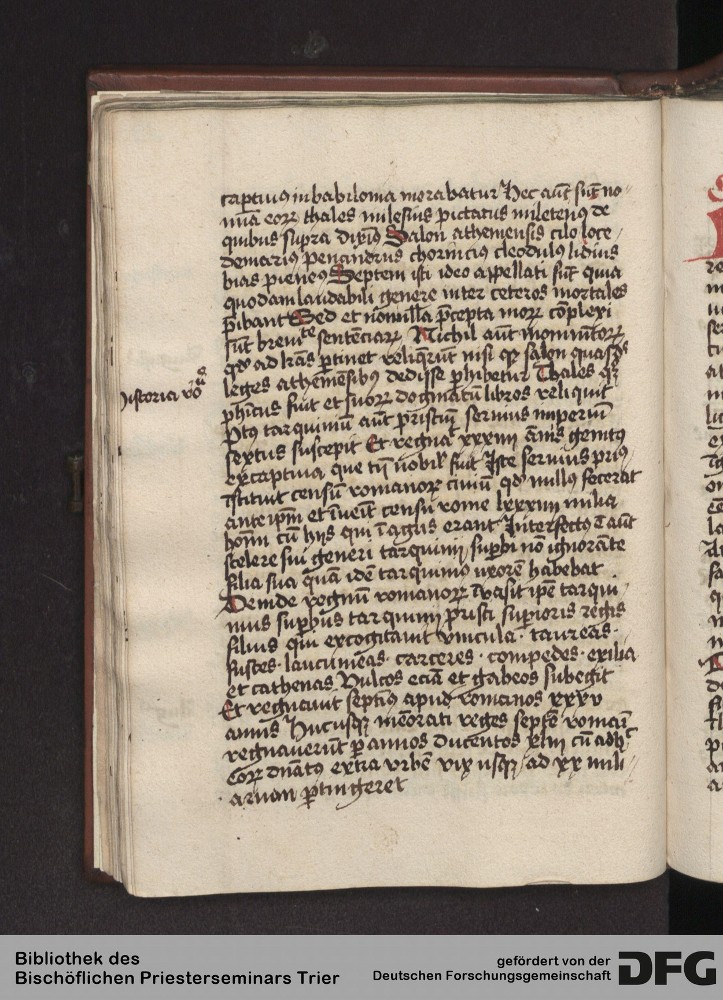 captiuus in babilonia morabatur Hec aūt sūt no
mina eorꝝ thales milesius pictacus miletenꝰ de
quibus supra diximꝰ Salon atheniensis cilo lace
demariꝰ periandrus chorinciꝰ cleodulꝰ lidius
bias pieneꝰ Septem isti ideo appellati sūt quia
quodam laudabili genere inter ceteros mortales
p̄ibant Sed et nōnulla p̄cepta morꝝ cōplexi
sūt breuite sentēciarꝝ Nichil aūt monimētorꝝ
qd̄ ad lr̄as ꝑtinet reliq̄rūt nisi qꝫ salon quasdā
leges atheniēsibꝰ dedisse ꝑhibetur Thales
historia ro
ph̄icus fuit et suorꝝ dogmatū libros reliquit
tarquiniū aūt priscū seruius imperiū
sextus suscepit Et regnat xxxiiii annis genitꝰ
ex captiua que tn̄ nobil fuit Iste seruius priꝰ
īstituit censū romanorꝝ ciuiū qd̄ nullꝰ fecerat
ante ipm̄ et īuēit censu rome lxxxiiii milia
homī cū hiis qui ī agris erant Interfectꝰ ē aūt
scelere sui generi tarquinij suꝑbi nō ignorāte
filia sua quā idē tarquinius vxorē habebat
Deinde regnū romanorꝝ īuasit ipē tarqui
nius suꝑbus tarquinij prisci suꝑioris regis
filius qui excogitauit vincula · taureas ·
fustes · laucumeas · carceres · compedes · exilia
et cathenas Vulcos eciā et gabeos subegit
Et regnauit septimꝰ apud romanos xxxv
annis Hucusqꝫ memorati reges septē romani
regnauerūt ꝑ annos ducentos xliii cū adhuc
eorꝝ dn̄atus extra vrbē vix usqꝫ ad xx mili
arium ꝑtingeret
Bibliothek des
Bischöflichen Priesterseminars Trier
gefördert von der
Deutschen Forschungsgemeinschaft
DFG